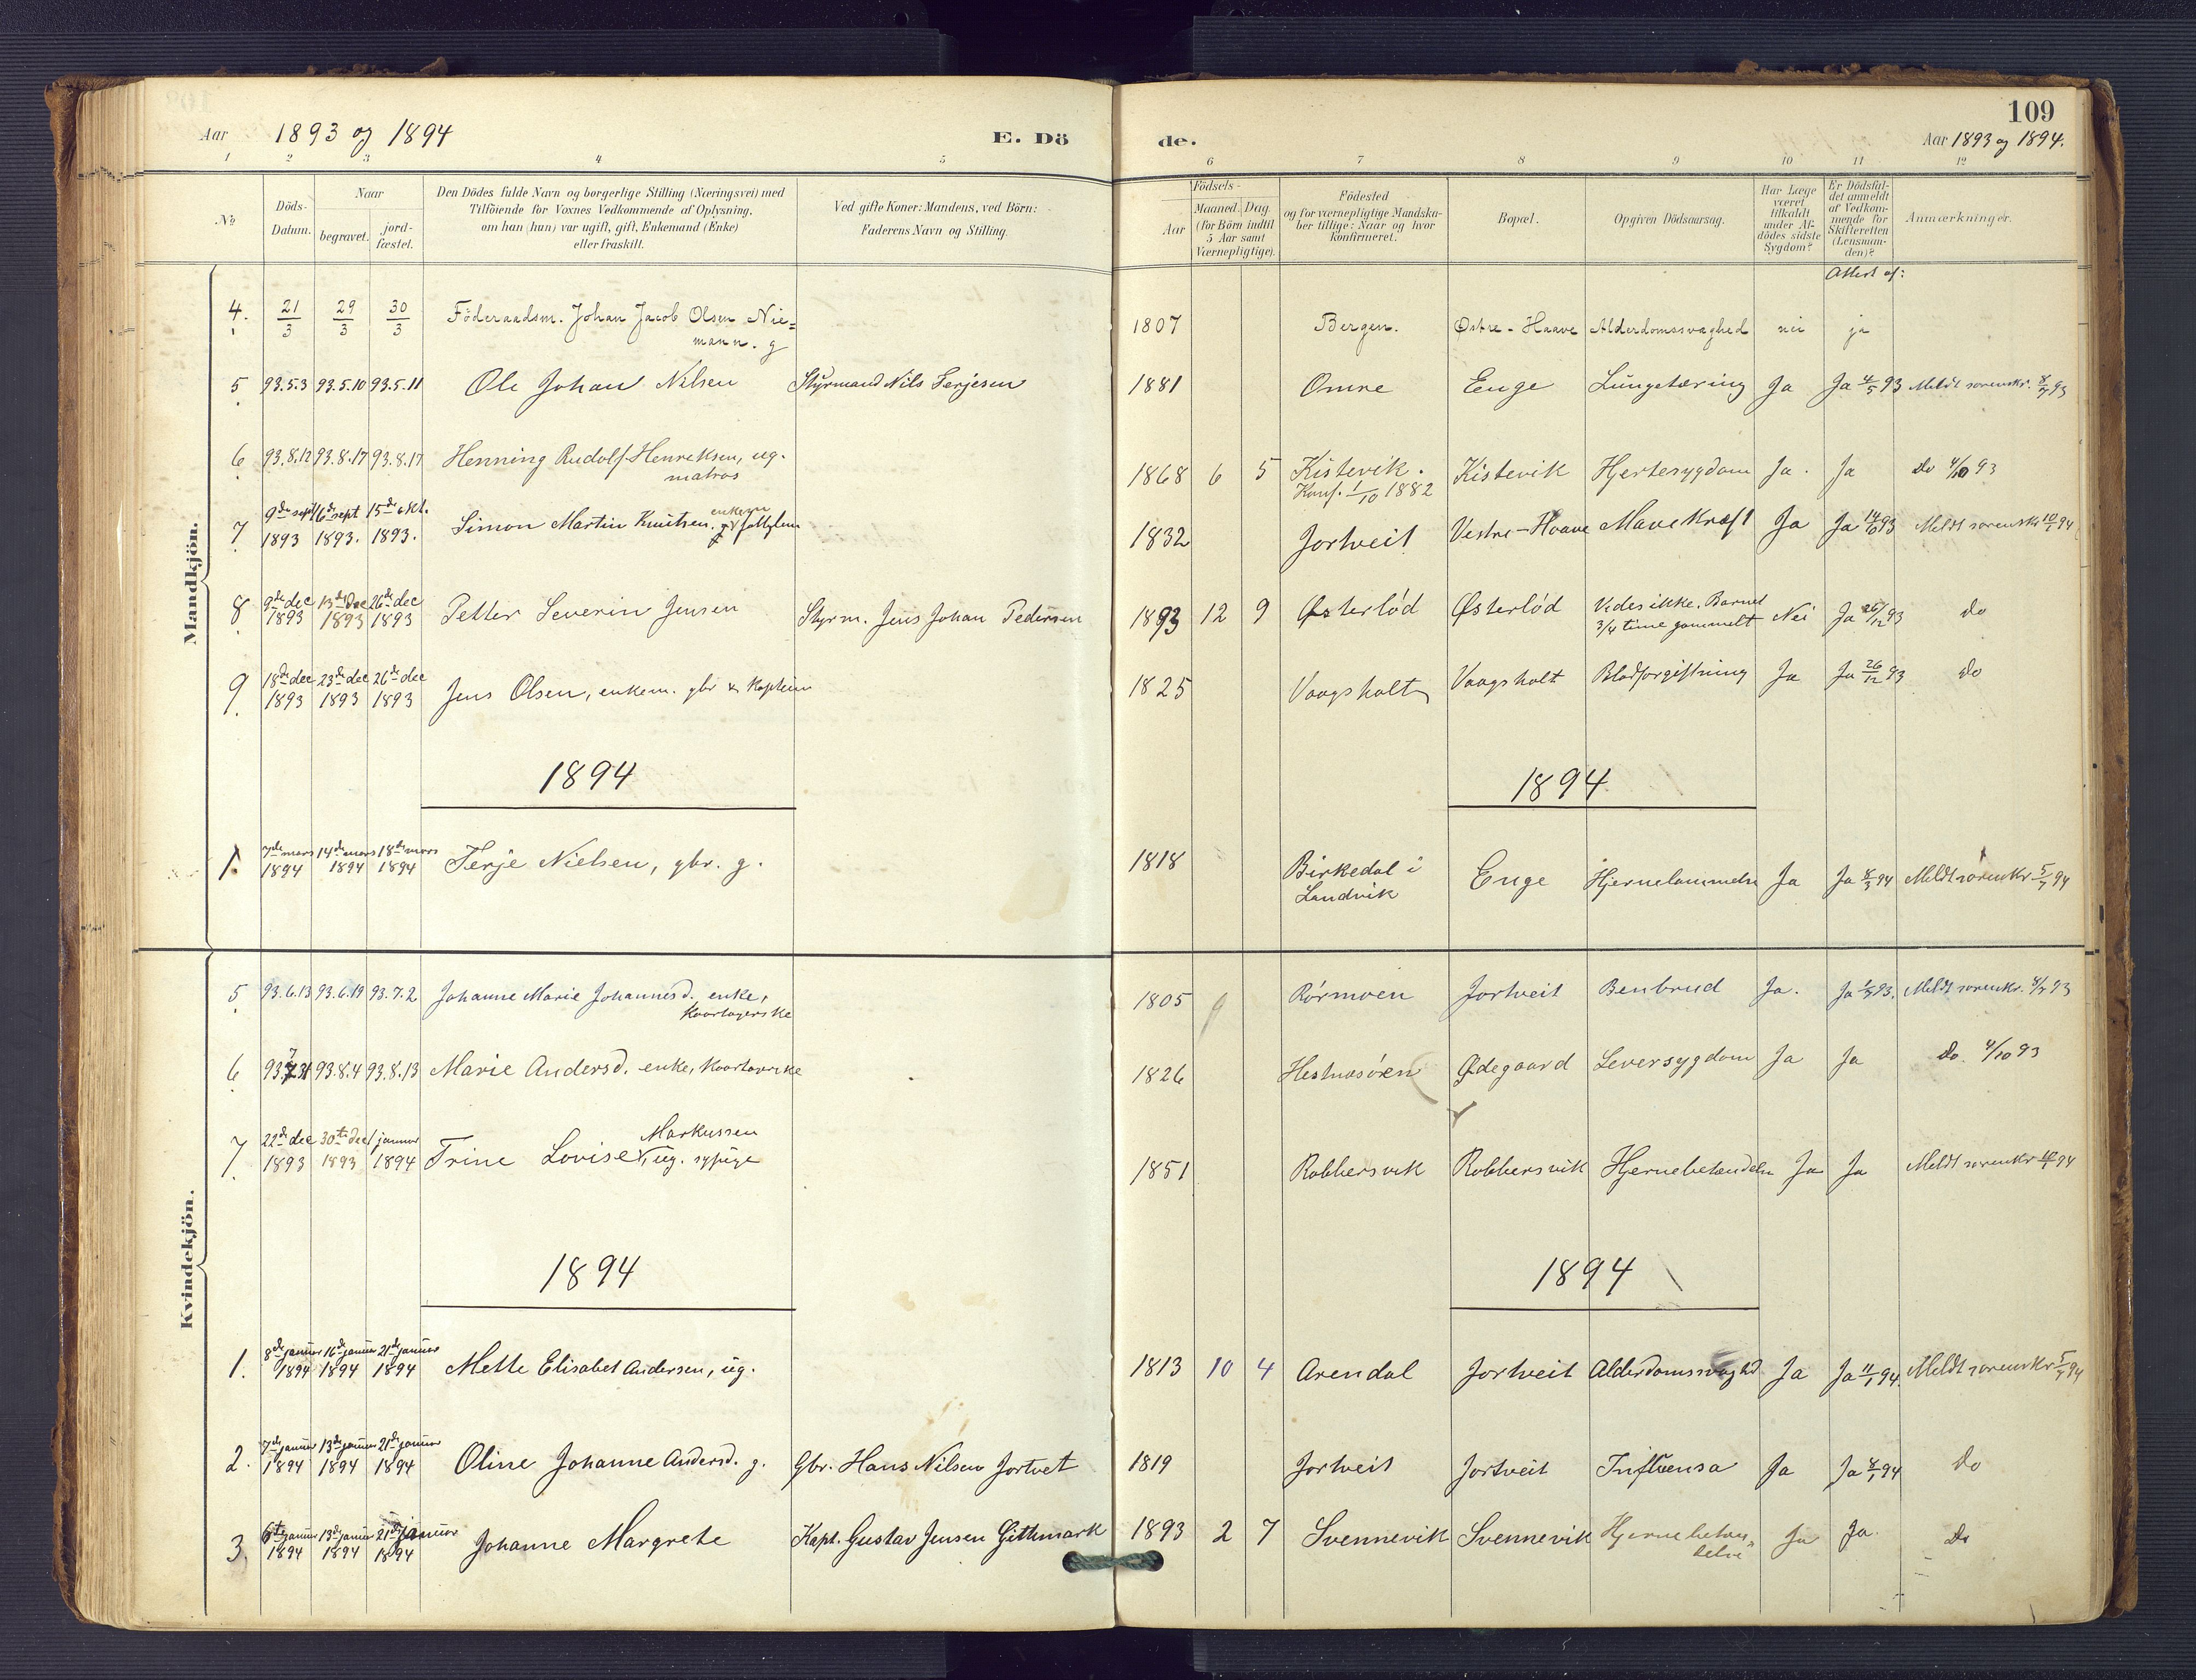 109
Aar 1893 og 1894 E. Dö de. Aar 1893 og 1894.
1 2 3 4 5 6 7 8 9 10 11 12
No
Döds-Datum.
Naar
begravet.
jord-fæstet.
Den Dödes fulde Navn og borgerlige Stilling (Næringsvei) med
Tilföiende for Voxnes Vedkommende af Oplysning,
om han (hun) var ugift, gift, Enkemand (Enke)
eller fraskilt.
Ved gifte Koner: Mandens, ved Börn:
Faderens Navn og Stilling.
Födsels-
Aar
Maaned. Dag.
(for Börn indtil
5 Aar samt
Værnepligtige).
Födested
og for værnepligtige Mandska-
ber tillige: Naar og hvor
konfirmeret.
Bopæl.
Opgiven Dödsaarsag.
Har Læge
været
tilkaldt
under Af-
dödes sidste
Sygdom?
Er Dödsfal-
det anmeldt
af Vedkom-
mende for
Skifteretten
(Lensman-
den)?
Anmærkninger.
Attest af:
Mandkjön.
4. 21/3 29/3 30/3 Föderaadsm. Johan Jacob Olsen Nie= 1807 Bergen. Østre-Haave Alderdomssvaghed nei ja
mann. g
5. 93.5.3 93.5.10 93.5.11 Ole Johan Nilsen Styrmand Nils Terjesen 1881 Omre Enge Lungetæring Ja Ja 4/5 93 Meldt sorenskr. 93
6. 93.8.12 93.8.17 93.8.17 Henning Rudolf Henriksen, ug. 1868 6 5 Kistevik. Kistevik Hjertesygdom Ja. Ja do 4/10 93
matros Konf. 1/10 1882
7. 9de sept 16de sept 15de okt. enkem
1893 1893. 1893. Simon Martin Knutsen. 1832 Jortveit Vestre-Haave Mavekræft Ja Ja 93 Meldt sorensk 94
8. 9de dec 13de dec 26de dec Petter Severin Jensen Styrm. Jens Johan Pedersen 1893 12 9 Østerlöd Østerlöd Vides ikke. Barnet Nei Ja 26/12 93 do
1893 1893 1893 3/4 time gammelt
9. 18de dec 23de dec 26de dec Jens Olsen, enkem. gbr & kaptein 1825 Vaagsholt Vaagsholt Blodforgiftning Ja Ja 26/12 93 do
1893 1893 1893
1894 1894
1. 7de mars 14de mars 18de mars Terje Nielsen, gbr. g. 1818 Birkedal i Enge Hjernelammelse Ja Ja 8/3 94 Meldt sorenskr 94
1894 1894 1894 Landvik
Kvindekjön.
5. 93.6.13 93.6.19 93.7.2 Johanne Marie Johannesd. enke, 1805 Rörmoen Jortveit Benbrud Ja. Ja 93. Meldt sorenskr. 93
6. 93.7.31 93.8.4 93.8.13 Marie Andersd. enke, 1826 Hesnæsöen Ødegaard Leversygdom Ja Ja do. 4/10 93
7. 22de dec 30te dec 1 januar Markussen
1893 1893 1894 Trine Lovise, ug. sypige 1851 Robbersvik Robbersvik Hjernebetændelse Ja Ja Meldt sorenskr 94
1894 1894
1. 8de januar 16de januar 21de januar Mette Elisabet Andersen, ug. 1813 10 4 Arendal Jortveit Alderdomssvaghd Ja Ja 11/1 94. Meldt sorenskr 94
1894 1894 1894
2. 7de januar 13de januar 21de januar Oline Johanne Andersd. g. Gbr. Hans Nilsen Jortvet 1819 Jortveit Jortveit Influensa Ja Ja 8/1 94 do
1894 1894 1894
3. 6te januar 13de januar 21de januar Johanne Margrete Kapt. Gustav Jensen Githmark 1893 2 7 Svennevik Svennevik Ja Ja. Do
1894 1894 1894